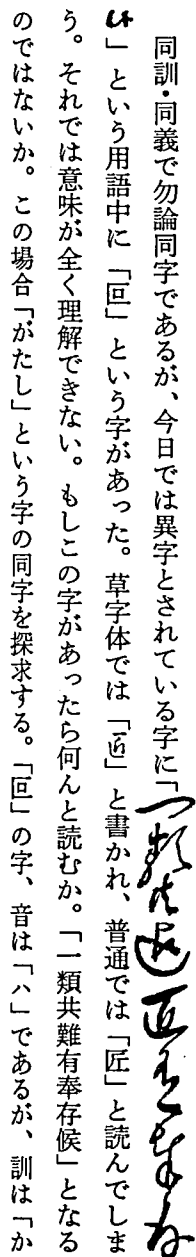 同訓・同義で勿論同字であるが、今日では異字とされている字に「一類共迄叵有奉存
候」という用語中に「叵」という字があった。草字体では「」と書かれ、普通では「匠」と読んでしま
う。それでは意味が全く理解できない。もしこの字があったら何んと読むか。「一類共難有奉存候」となる
のではないか。この場合「がたし」という字の同字を探求する。「叵」の字、音は「ハ」であるが、訓は「か